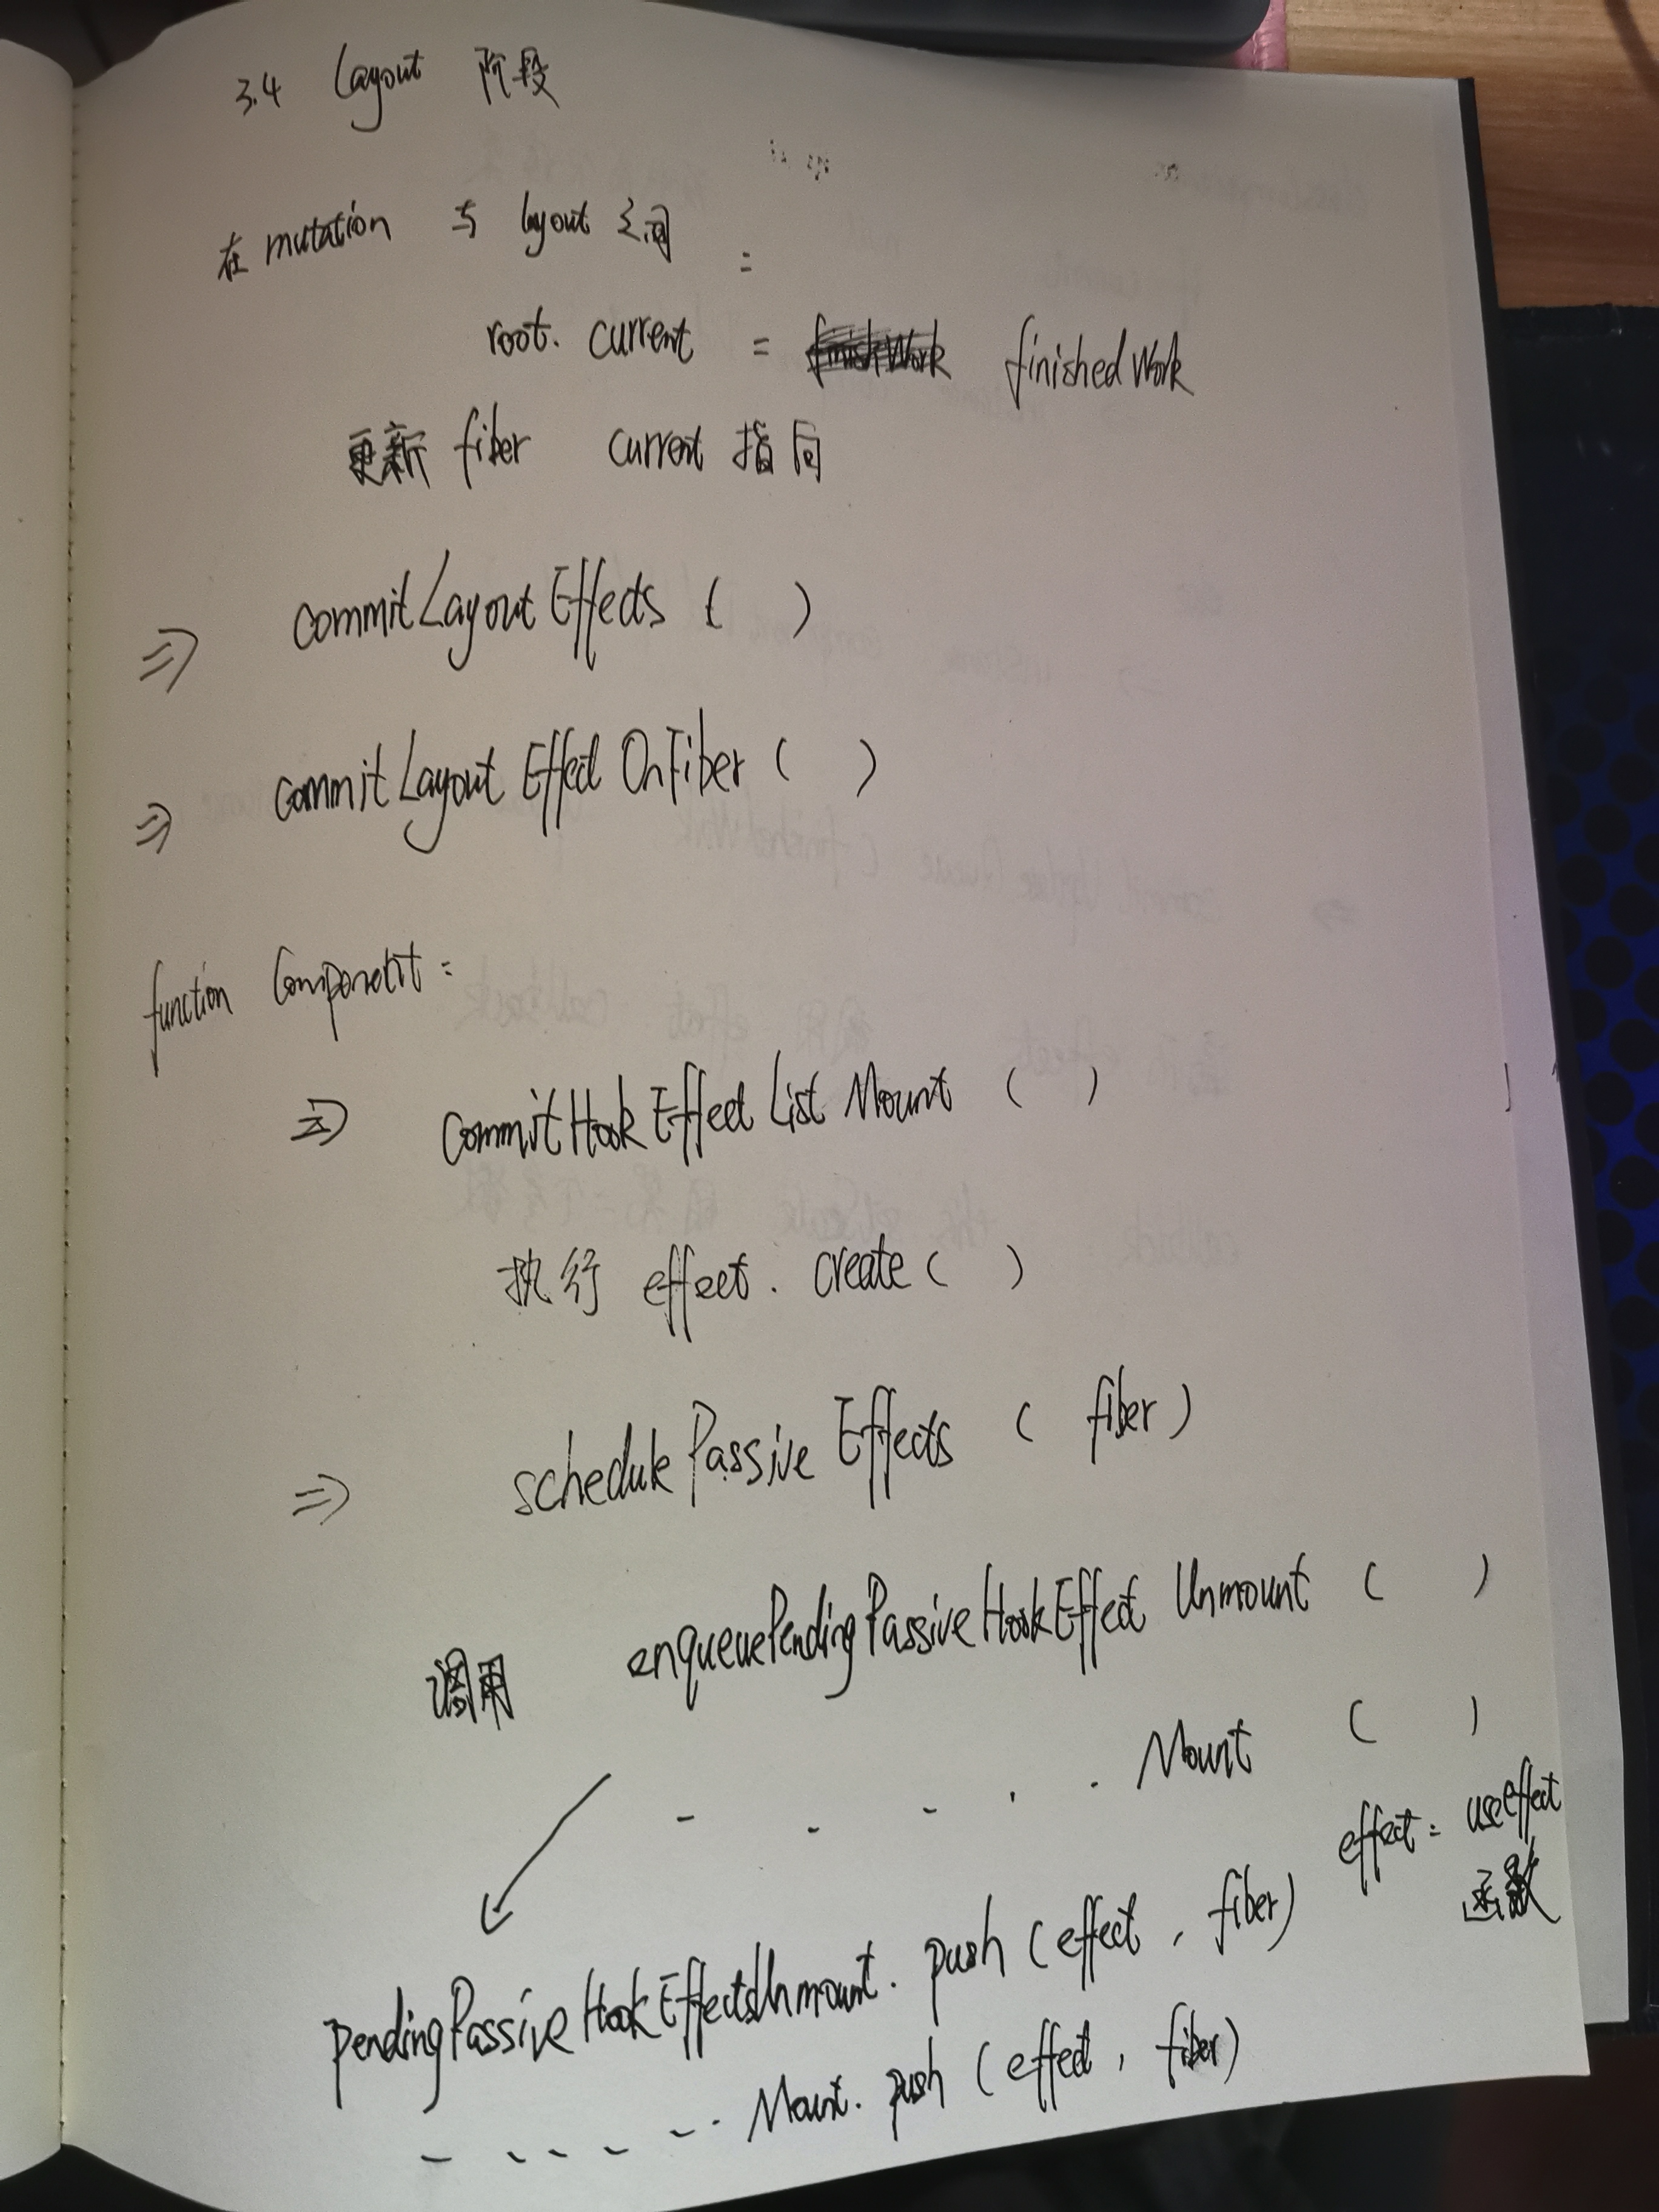 3.4 Layout 阶段
在 mutation 与 layout 之间 :
root. current = finishedWork
更新 fiber current 指向
⇒ commitLayoutEffects ( )
⇒ commitLayoutEffectOnFiber ( )
function Component :
⇒ commitHookEffectListMount ( )
执行 effect. create ( )
⇒ schedulePassiveEffects ( fiber )
调用 enqueuePendingPassiveHookEffectUnmount ( )
- - - . . Mount ( )
effect : useEffect
函数
pendingPassiveHookEffectsUnmount. push ( effect , fiber )
- - - - - - . Mount. push ( effect , fiber )